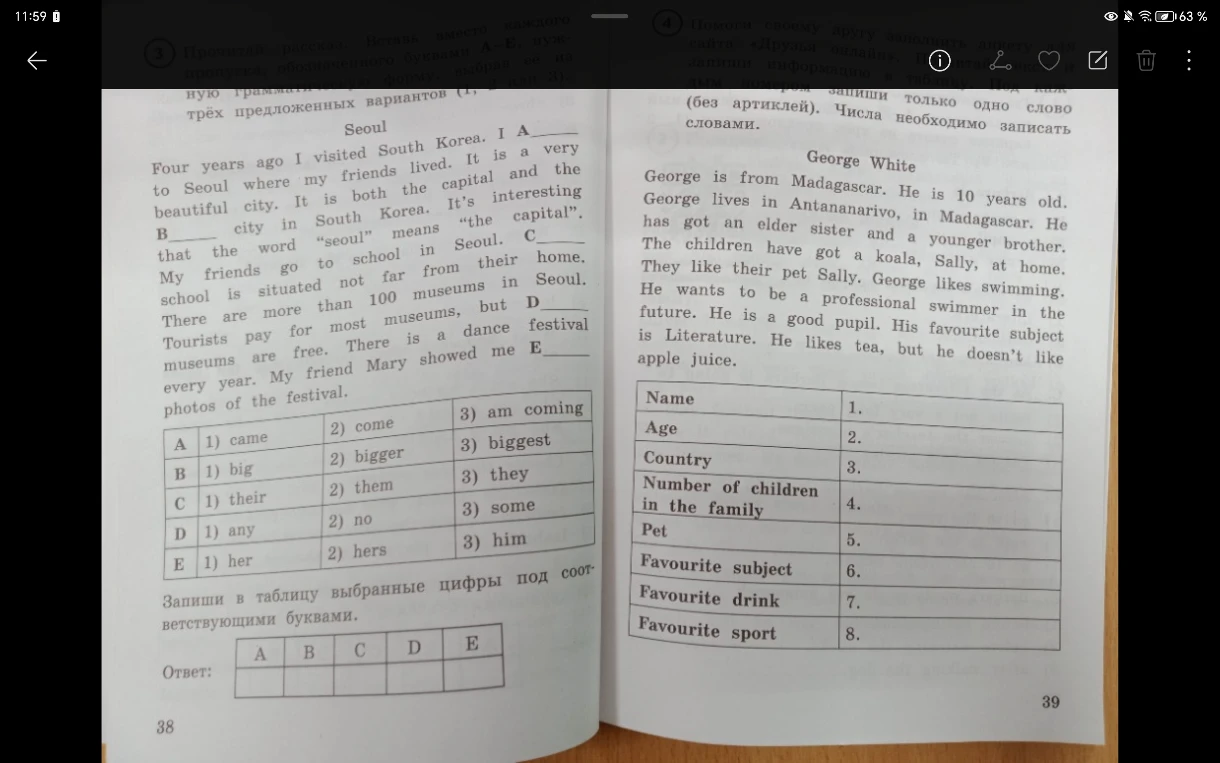 11:59
63 %
3 Прочитай рассказ. Вставь вместо каждого
пропуска, обозначенного буквами A–E, нуж-
ную грамматическую форму, выбрав из
трёх предложенных вариантов (1, 2 или 3).
Seoul
Four years ago I visited South Korea. I A_____
to Seoul where my friends lived. It is a very
beautiful city. It is both the capital and the
B_____ city in South Korea. It's interesting
that the word “seoul” means “the capital”.
My friends go to school in Seoul. C_____
school is situated not far from their home.
There are more than 100 museums in Seoul.
Tourists pay for most museums, but D_____
museums are free. There is a dance festival
every year. My friend Mary showed me E_____
photos of the festival.
A 1) came 2) come 3) am coming
B 1) big 2) bigger 3) biggest
C 1) their 2) them 3) they
D 1) any 2) no 3) some
E 1) her 2) hers 3) him
Запиши в таблицу выбранные цифры под соот-
ветствующими буквами.
Ответ:
A B C D E
38
4 Помоги своему другу заполнить анкету для
сайта «Друзья онлайн».
запиши информацию в таблицу. Под каж-
дым номером запиши только одно слово
(без артиклей). Числа необходимо записать
словами.
George White
George is from Madagascar. He is 10 years old.
George lives in Antananarivo, in Madagascar. He
has got an elder sister and a younger brother.
The children have got a koala, Sally, at home.
They like their pet Sally. George likes swimming.
He wants to be a professional swimmer in the
future. He is a good pupil. His favourite subject
is Literature. He likes tea, but he doesn't like
apple juice.
Name 1.
Age 2.
Country 3.
Number of children
in the family 4.
Pet 5.
Favourite subject 6.
Favourite drink 7.
Favourite sport 8.
39